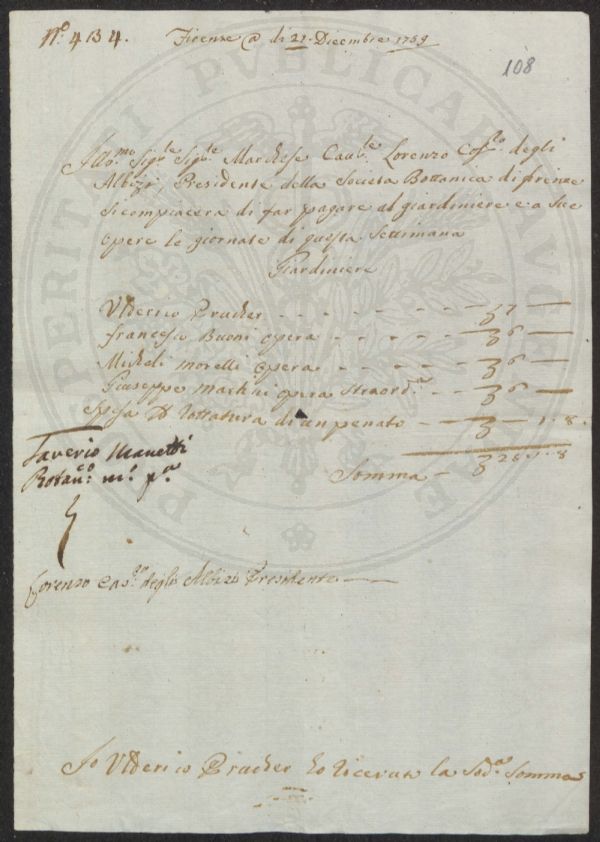 N.º 434. Firenze @ dì 22. Dicembre 1759
108
Ill.mo Sig.re Sig.re Marchese Cav.re Lorenzo degli
Albizi, Presidente della Società Bottanica di firenze
si compiacerà di far pagare al giardiniere e a Sue
Opere le giornate di questa Settimana
Giardiniere
Ulderico Prucher - - - - - - - 7 —
francesco Buoni opera - - - - 6 —
Micheli Morelli Opera - - - - 6 —
Giuseppe Marchini opera Straord.a - 6 —
Spesa di Rottatura di un penato - - 1. 8.
Saverio Manetti
Botan.co m.o p.a
Somma - 26. 1. 8
Lorenzo Cas.o degli Albizi Presidente
Io Ulderico Prucher ho ricevuto la Sod.a Somma